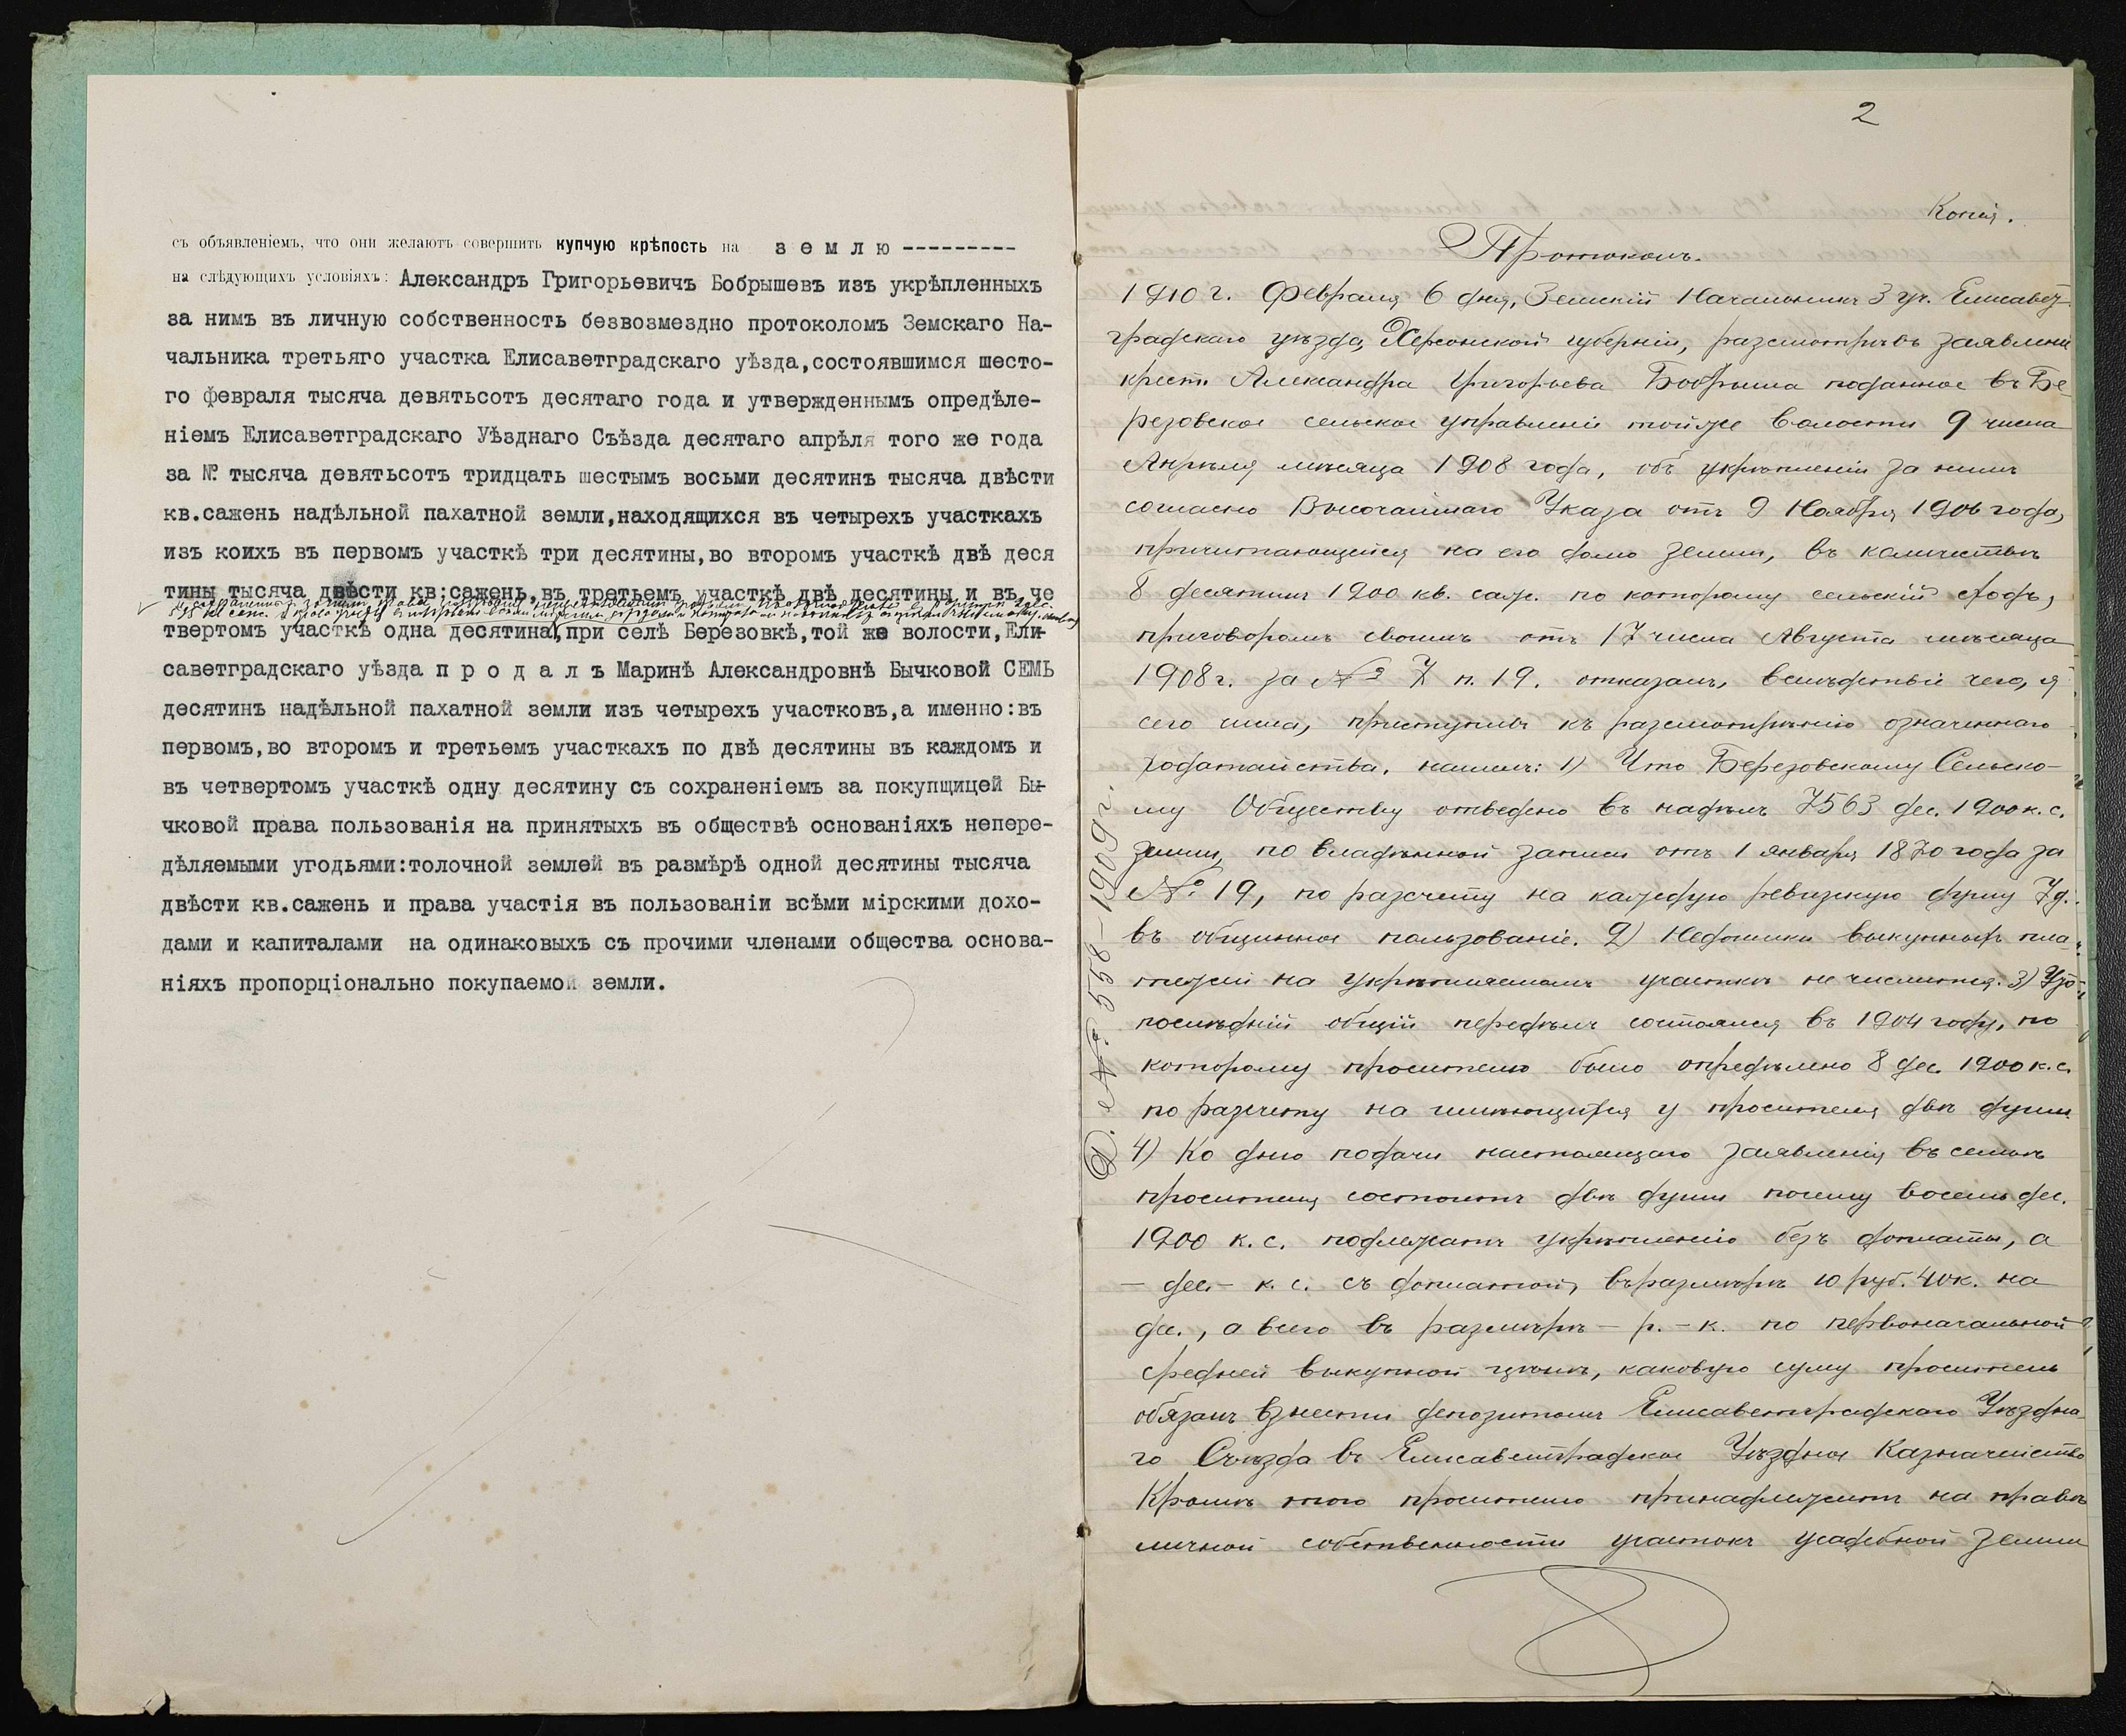 съ объявленіемъ, что они желаютъ совершить купчую крѣпость на з е м л ю ---------
на слѣдующихъ условіяхъ: Александръ Григорьевичъ Бобрышевъ изъ укрѣпленныхъ
за нимъ въ личную собственность безвозмездно протоколомъ Земскаго На-
чальника третьяго участка Елисаветградскаго уѣзда,состоявшимся шесто-
го февраля тысяча девятьсотъ десятаго года и утвержденнымъ опредѣле-
ніемъ Елисаветградскаго Уѣзднаго Съѣзда десятаго апрѣля того же года
за № тысяча девятьсотъ тридцать шестымъ восьми десятинъ тысяча двѣсти
кв.сажень надѣльной пахатной земли,находящихся въ четырехъ участкахъ
изъ коихъ въ первомъ участкѣ три десятины,во второмъ участкѣ двѣ деся
тины тысяча двѣсти кв:сажень,въ третьемъ участкѣ двѣ десятины и въ че
твертомъ участкѣ одна десятина,при селѣ Березовкѣ,той же волости,Ели-
саветградскаго уѣзда п р о д а л ъ Маринѣ Александровнѣ Бычковой СЕМЬ
десятинъ надѣльной пахатной земли изъ четырехъ участковъ,а именно:въ
первомъ,во второмъ и третьемъ участкахъ по двѣ десятины въ каждомъ и
въ четвертомъ участкѣ одну десятину съ сохраненіемъ за покупщицей Бы-
чковой права пользованія на принятыхъ въ обществѣ основаніяхъ непере-
дѣляемыми угодьями:толочной землей въ размѣрѣ одной десятины тысяча
двѣсти кв.сажень и права участія въ пользованіи всѣми мірскими дохо-
дами и капиталами на одинаковыхъ съ прочими членами общества основа-
ніяхъ пропорціонально покупаемой земли.
2
Копія.
Протоколъ.
1910 г. Февраля 6 дня, Земскій Начальникъ 3 уч. Елисавет-
градскаго уѣзда, Херсонской губерніи, разсмотрѣвъ заявленіе
крест. Александра Григорьева Бобрыша поданное въ Бе-
резовское сельское управленіе тойже волости 9 числа
Апрѣля мѣсяца 1908 года, объ укрѣпленіи за нимъ
согласно Высочайшаго Указа отъ 9 Ноября 1906 года,
причитающейся на его долю земли, въ количествѣ
8 десятинъ 1200 кв. саж. по которому сельскій сходъ,
приговоромъ своимъ отъ 17 числа Августа мѣсяца
1908 г. за № 7 п. 19. отказалъ, вслѣдствіе чего, я
сего числа, приступивъ къ разсмотрѣнію означеннаго
ходатайства, нашелъ: 1) Что Березовскому Сельско-
му Обществу отведено въ надѣлъ 7563 дес. 1200 к. с.
земли, по владѣнной записи отъ 1 января 1870 года за
№ 19, по разсчету на каждую ревизскую душу 7 д.
въ общинное пользованіе. 2) Недоимки выкупныхъ пла-
тежей на укрѣпляемомъ участкѣ не числится. 3) Что
послѣдній общій передѣлъ состоялся въ 1904 году, по
которому просителю было опредѣлено 8 дес. 1200 к. с.
по разсчету на имѣющихся у просителя двѣ души
4) Ко дню подачи настоящаго заявленія въ семьѣ
просителя состоитъ двѣ души почему восемь дес.
1200 к. с. подлежатъ укрѣпленію безъ доплаты, а
— дес. — к. с. съ доплатой, въ размѣрѣ 10 руб. 40 к. на
дес., а всего въ размѣрѣ — р. — к. по первоначальной
средней выкупной цѣнѣ, каковую суму проситель
обязанъ взнести депозитомъ Елисаветградскаго Уѣздна-
го Съѣзда въ Елисаветградское Уѣздное Казначейство
Кромѣ того просителю принадлежитъ на правѣ
личной собственности участокъ усадебной земли
Д. № 558-1909 г.